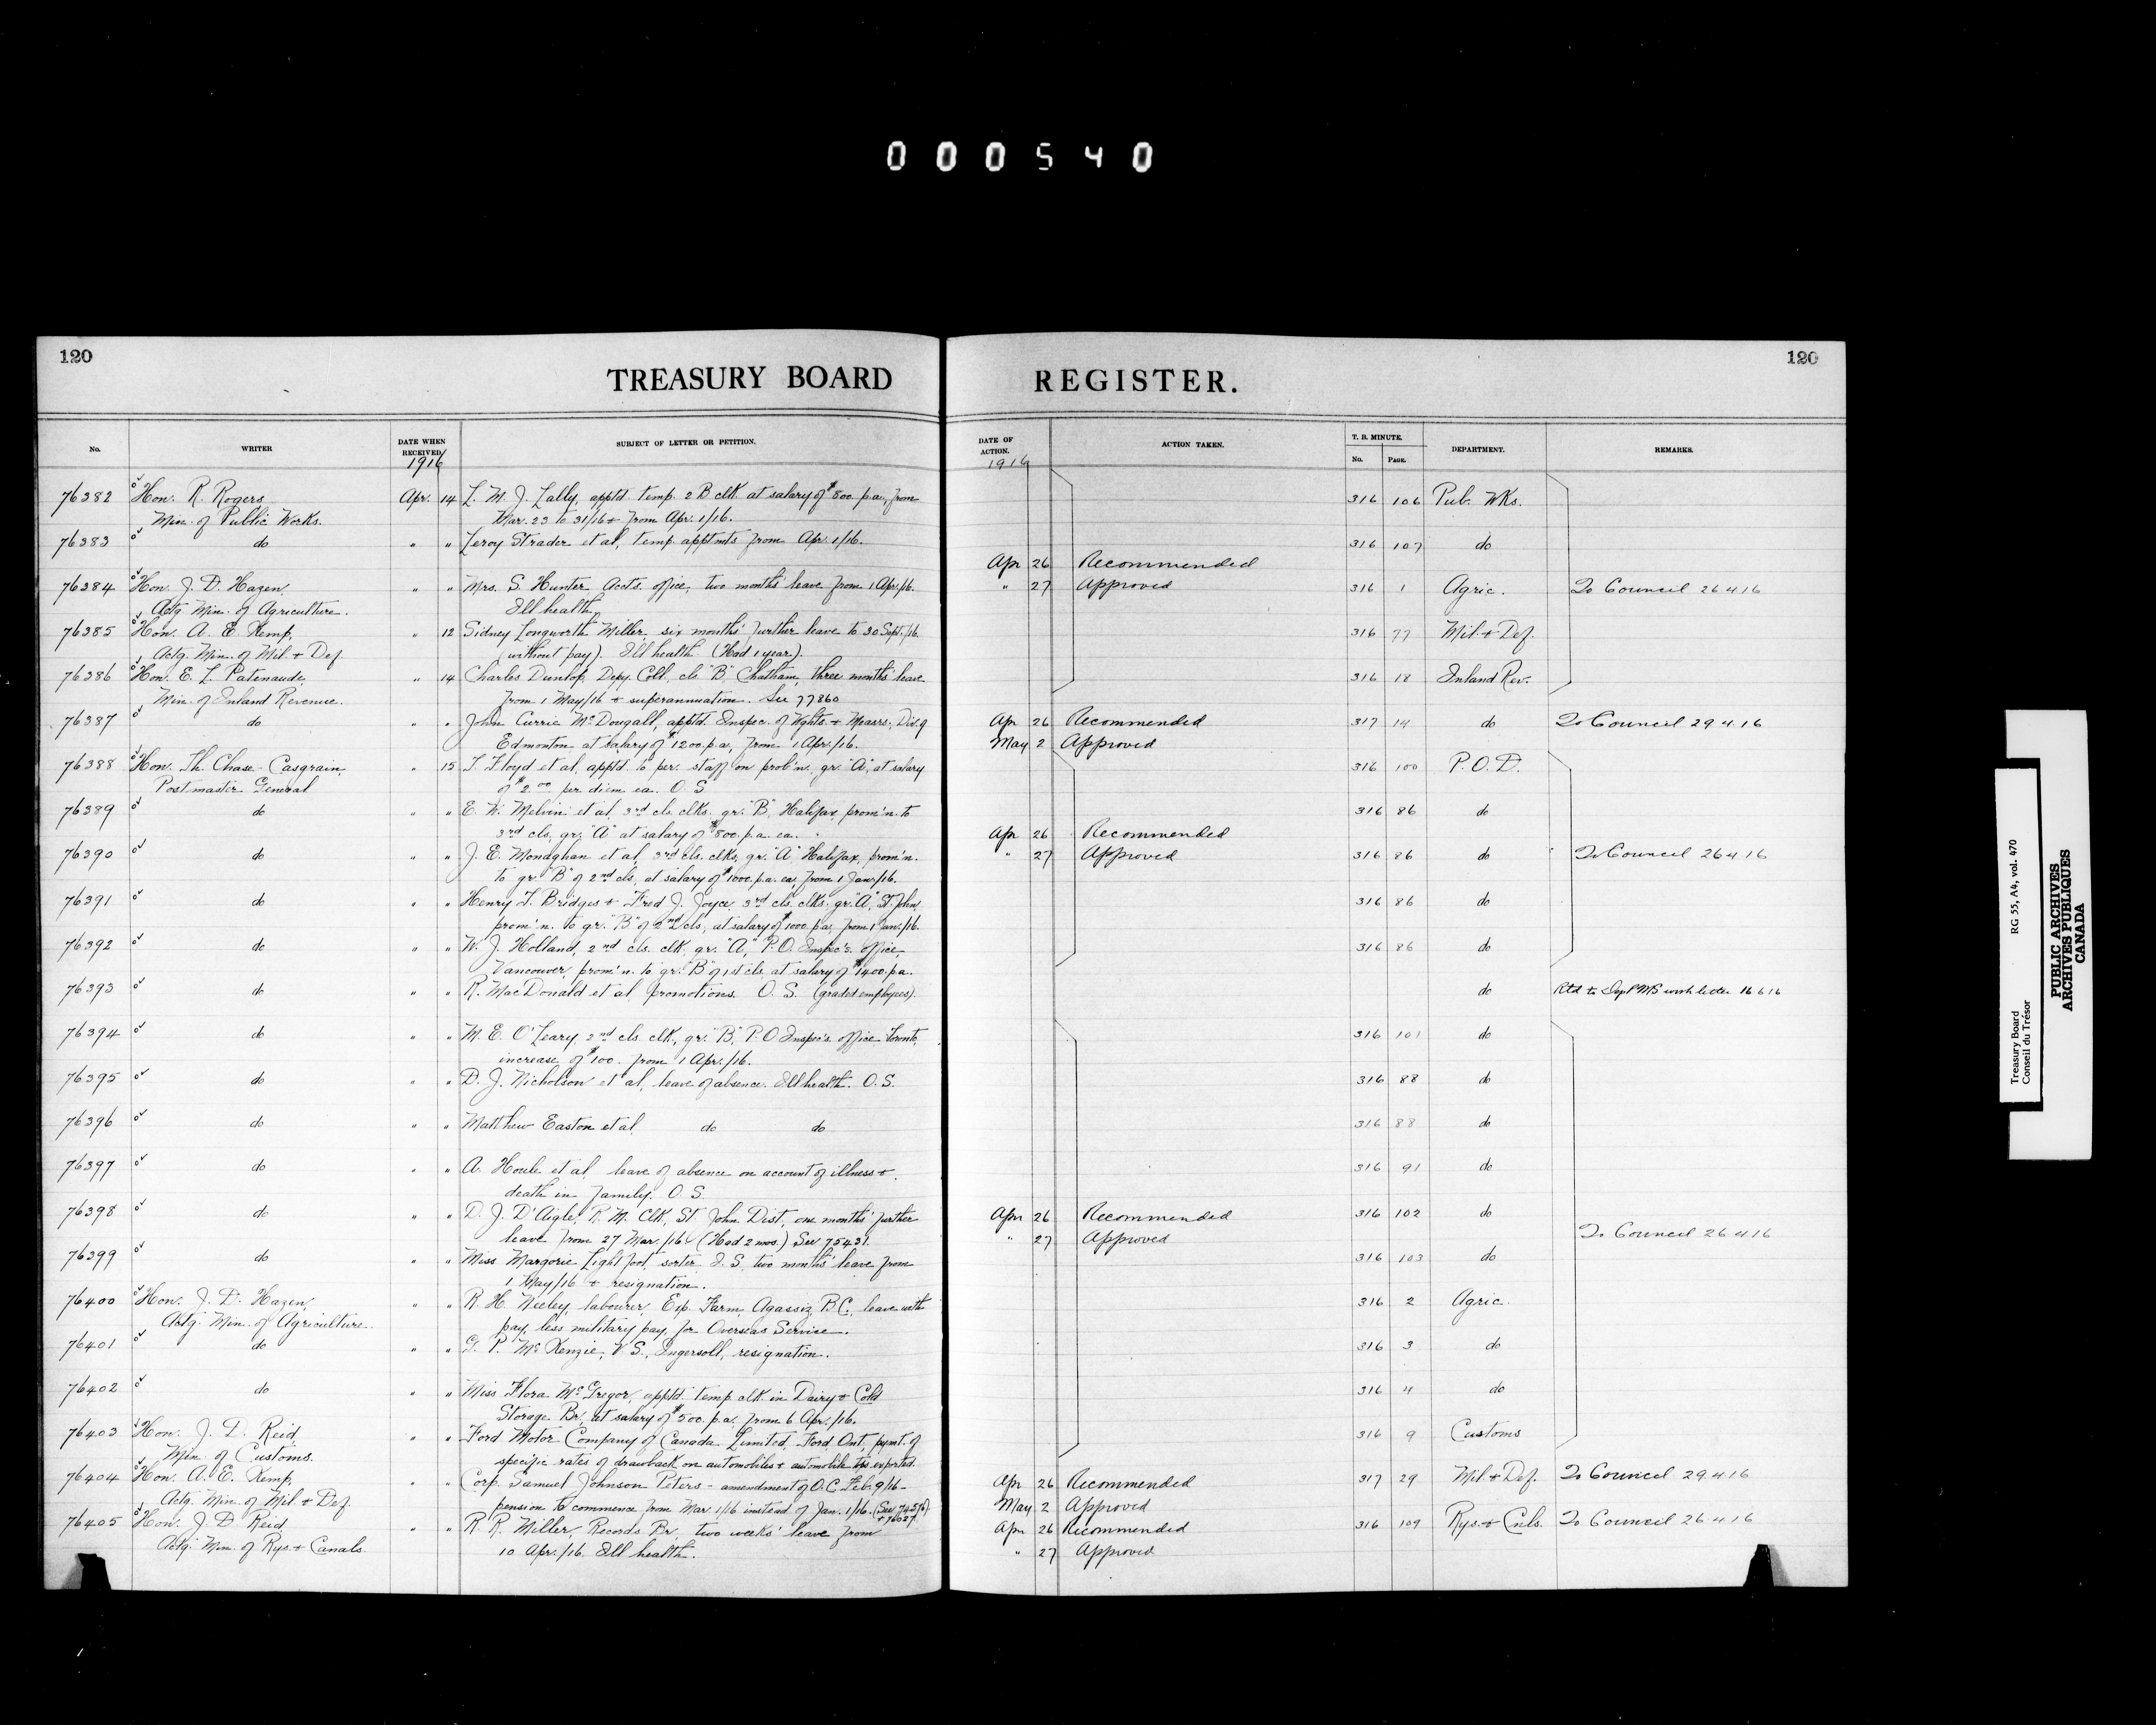 000540
120
TREASURY BOARD REGISTER.
120
No. WRITER DATE WHEN RECEIVED SUBJECT OF LETTER OR PETITION. DATE OF ACTION. ACTION TAKEN. T. B. MINUTE. No. PAGE. DEPARTMENT. REMARKS.
1916 1916
76382 Hon. R. Rogers Apr. 14 L. M. J. Lally, apptd. temp. 2 B clk. at salary of $800. p.a., from 316 106 Pub. Wks.
Min. of Public Works. Mar. 23 to 31/16 + from Apr. 1/16.
76383 do " " Leroy Strader et al, temp. apptmts from Apr. 1/16. 316 107 do
Apr 26 Recommended
76384 Hon. J. D. Hazen, " " Mrs. S. Hunter Accts. office, two months' leave from 1 Apr./16. " 27 Approved 316 1 Agric. To Council 26 4 16
Actg Min. of Agriculture. Ill health.
76385 Hon. A. E. Kemp, " 12 Sidney Longworth Miller, six months' further leave to 30 Sept./16, 316 77 Mil. + Def.
Actg. Min. of Mil. + Def. (without pay). Ill health (Had 1 year).
76386 Hon. E. L. Patenaude, " 14 Charles Dunlop, Depy. Coll., cls "B" Chatham, three months' leave 316 18 Inland Rev.
Min. of Inland Revenue. from 1 May/16 + superannuation. See 77860
76387 do " " John Currie McDougall, apptd. Inspec. of Wghts. + Measrs. Div. of Apr 26 Recommended 317 14 do To Council 29 4 16
Edmonton at salary of $1200. p.a., from 1 Apr./16. May 2 Approved
76388 Hon. Th. Chase-Casgrain, " 15 T. Floyd et al, apptd. to per. staff on prob'n., gr. "A", at salary 316 100 P.O.D.
Postmaster General of $2.00 per diem ea. O. S.
76389 do " " E. W. Melvin et al, 3rd cls. clks. gr. "B", Halifax, prom'n. to 316 86 do
3rd cls, gr. "A" at salary of $800. p.a. ea. " Apr 26 Recommended
76390 do " " J. E. Monaghan et al, 3rd cls. clks, gr. "A" Halifax, prom'n. " 27 Approved 316 86 do To Council 26 4 16
to gr. "B" of 2nd cls, at salary of $1000. p.a. ea, from 1 Jan./16.
76391 do " " Henry T. Bridges + Fred J. Joyce, 3rd cls. clks. gr. "A", St. John, 316 86 do
prom'n. to gr. "B" of 2nd cls, at salary of $1000 p.a. from 1 Jan./16.
76392 do " " W. J. Holland, 2nd cls. clk, gr. "A," P.O. Inspec's. office, 316 86 do
Vancouver, prom'n. to gr. "B" of 1st cls, at salary of $1400. p.a.
76393 do " " R. MacDonald et al promotions. O. S. (graded employees). do Rtd to Dep P M S with letter 16 6 16
76394 do " " M. E. O'Leary, 2nd cls. clk, gr. "B", P.O Inspec's. office Toronto, 316 101 do
increase of $100. from 1 Apr./16.
76395 do " " D. J. Nicholson et al, leave of absence. Ill health. O. S. 316 88 do
76396 do " " Matthew Easton et al do do 316 88 do
76397 do " " A. Houle et al leave of absence on account of illness + 316 91 do
death in family. O. S.
76398 do " " D. J. D'Aigle, R. M. Clk, St. John Dist, one months' further Apr 26 Recommended 316 102 do
leave from 27 Mar./16. (Had 2 mos.) See 75431. " 27 Approved To Council 26 4 16
76399 do " " Miss Margorie Lightfoot, sorter I. S, two months' leave from 316 103 do
1 May/16 + resignation.
76400 Hon. J. D. Hazen, " " R. H. Neeley, labourer, Exp. Farm, Agassiz, B.C., leave with 316 2 Agric.
Actg. Min. of Agriculture. pay, less military pay, for Overseas Service.
76401 do " " G. P. McKenzie, V. S., Ingersoll, resignation. 316 3 do
76402 do " " Miss Flora McGregor, apptd. temp. clk. in Dairy + Cold 316 4 do
Storage Br, at salary of $500. p.a. from 6 Apr./16.
76403 Hon. J. D. Reid, " " Ford Motor Company of Canada Limited, Ford, Ont., pymt. of 316 9 Customs
Min. of Customs. specific rates of drawback on automobiles + automobile exported.
76404 Hon. A. E. Kemp, " " Corp. Samuel Johnson Peters - amendment of O.C. Feb. 9/16 - Apr 26 Recommended 317 29 Mil. + Def. To Council 29 4 16
Actg. Min. of Mil. + Def. pension to commence from Mar 1/16 instead of Jan. 1/16. May 2 Approved
76405 Hon. J. D. Reid, " " R. R. Miller, Records Br, two weeks' leave from Apr 26 Recommended 316 109 Rys. + Cnls. To Council 26 4 16
Actg. Min. of Rys. + Canals. 10 Apr./16. Ill health. " 27 Approved
Treasury Board RG 55, A4, vol. 470
Conseil du Trésor
PUBLIC ARCHIVES
ARCHIVES PUBLIQUES
CANADA